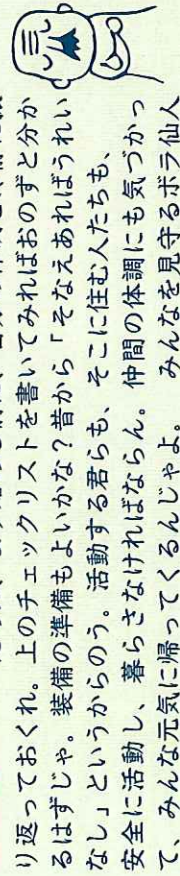 り返っておくれ。上のチェックリストを書いてみればおのずと分か
るはずじゃ。装備の準備もよいかな?昔から「そなえあればうれい
なし」というからのう。活動する君らも、そこに住む人たちも、
安全に活動し、暮らさなければならん。仲間の体調にも気づかっ
て、みんな元気に帰ってくるんじゃよ。　みんなを見守るボラ仙人